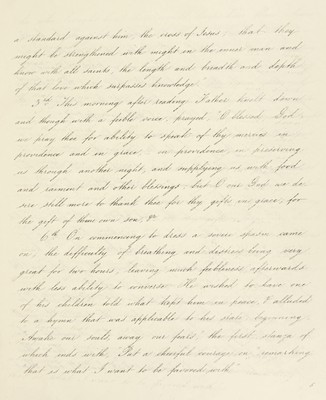 a standard against him the cross of Jesus: that they
might be strengthened with might in the inner man and
know with all saints, the length and breadth and depth
of that love which surpasses knowledge."
3rd This morning after reading Father knelt down
and though with a feeble voice prayed, "O blessed God
we pray thee for ability to speak of thy mercies in
providence and in grace; in providence in preserving
us through another night, and supplying us with food
and raiment and other blessings; but O our God we de
sire still more to thank thee for thy gifts in grace, for
the gift of thine own son," &c
6th On commencing to dress a severe spasm came
on, the difficulty of breathing and distress being very
great for two hours, leaving much feebleness afterwards
with less ability to converse. He wished to have one
of his children told what kept him in peace, & alluded
to a hymn that was applicable to his state, beginning
"Awake our souls, away our fears," the first stanza of
which ends with, "Put a cheerful courage on," remarking
"that is what I want to be favored with."